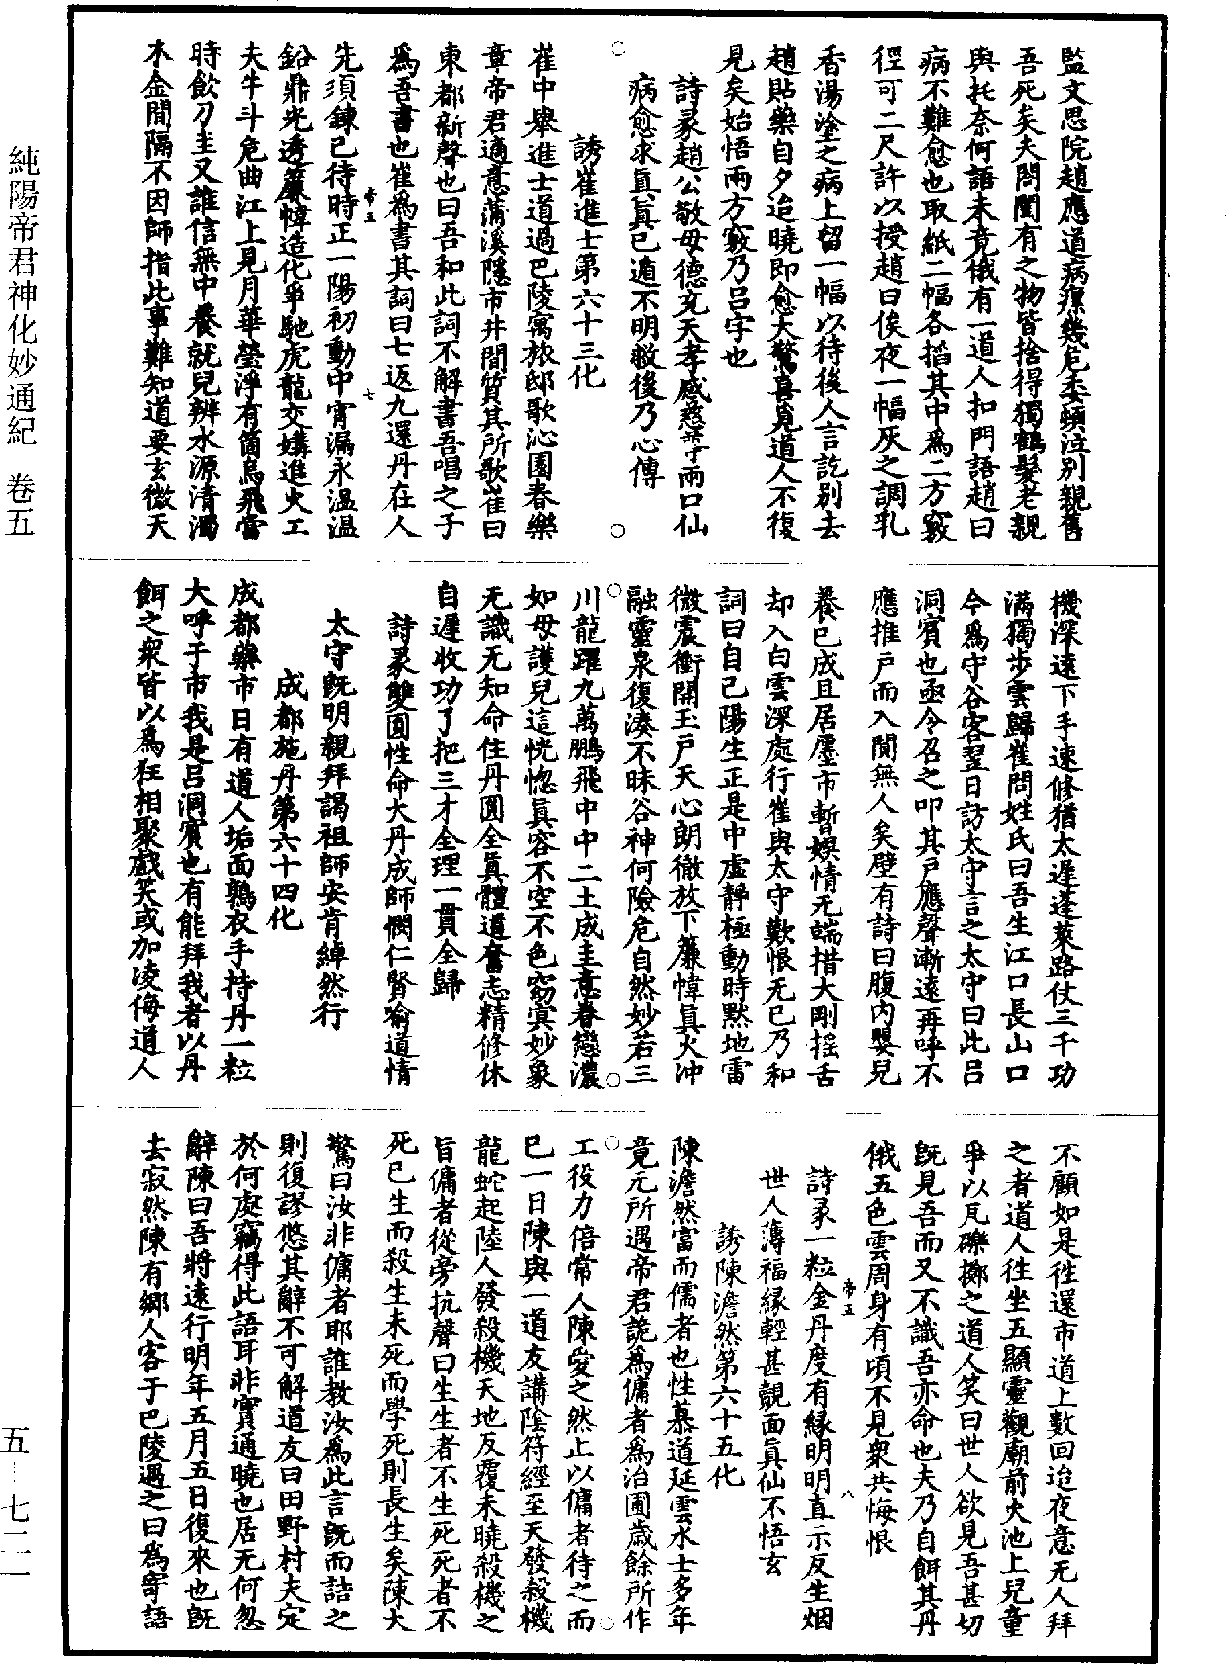 監文思院趙應道病瘰幾危委頓泣別親舊
吾死矣夫問閨有之物皆捨得獨鶴髮老親
與托奈何語未竟俄有一道人扣門語趙曰
病不難愈也取紙二幅各掐其中爲二方竅
徑可二尺許以授趙曰俟夜一幅灰之調乳
香湯塗之病上留一幅以待後人言訖別去
趙貼藥自夕迨曉即愈大驚喜覓道人不復
見矣始悟兩方竅乃呂字也
詩彖趙公敬母德充天孝感慈尊兩口仙
病愈求眞眞已遁不明救後乃心傳
誘崔進士第六十三化
崔中舉進士道過巴陵寓旅邸歌沁園春樂
章帝君適意蒲溪隱市井間質其所歌崔曰
東都新聲也曰吾和此詞不解書吾唱之子
爲吾書也崔爲書其詞曰七返九還丹在人
先須鍊己待時正一陽初動中宵漏永溫溫
帝五
七
鉛鼎光透簾幃造化爭馳虎龍交媾進火工
夫牛斗危曲江上見月華瑩淨有箇烏飛當
時飲刀圭又誰信無中養就兒辨水源清濁
木金間隔不因師指此事難知道要玄微天
機深遠下手速修猶太遲蓬萊路仗三千功
滿獨步雲歸崔問姓氏曰吾生江口長山口
今爲守谷客翌日訪太守言之太守曰此呂
洞賓也亟令召之叩其戶應聲漸遠再呼不
應推戶而入闃無人矣壁有詩曰腹內嬰兒
養已成且居廛市暫娛情无端措大剛摇舌
却入白雲深處行崔與太守歎恨无已乃和
詞曰自己陽生正是中虛靜極動時默地雷
微震衝開玉戶天心朗徹放下簾幃眞火沖
融靈泉復湊不昧谷神何險危自然妙若三
川龍躍九萬鵬飛中中二土成圭意春戀濃
如母護兒這恍惚眞容不空不色窈冥妙象
无識无知命住丹圓全眞體道奮志精修休
自遲收功了把三才全理一貫全歸
詩彖雙圓性命大丹成師憫仁賢喻道情
太守旣明親拜謁祖師安肯綽然行
成都施丹第六十四化
成都藥市日有道人垢面鶉衣手持丹一粒
大呼于市我是呂洞賓也有能拜我者以丹
餌之衆皆以爲狂相聚戲笑或加凌侮道人
不顧如是徃還市道上數回迨夜意无人拜
之者道人徃坐五顯靈觀廟前火池上兒童
爭以瓦礫擲之道人笑曰世人欲見吾甚切
旣見吾而又不識吾亦命也夫乃自餌其丹
俄五色雲周身有頃不見衆共悔恨
詩彖一粒金丹度有緣明明直示反生烟
帝五
八
世人薄福緣輕甚覿面眞仙不悟玄
誘陳澹然第六十五化
陳澹然富而儒者也性慕道延雲水士多年
竟无所遇帝君詭爲傭者爲治圃歲餘所作
工役力倍常人陳愛之然止以傭者待之而
已一日陳與一道友講陰符經至天發殺機
龍蛇起陸人發殺機天地反覆未曉殺機之
旨傭者從旁抗聲曰生生者不生死死者不
死已生而殺生未死而學死則長生矣陳大
驚曰汝非傭者耶誰教汝爲此言旣而詰之
則復謬悠其辭不可解道友曰田野村夫定
於何處竊得此語耳非實通曉也居无何忽
辭陳曰吾將遠行明年五月五日復來也旣
去寂然陳有鄉人客于巴陵遇之曰爲寄語
純陽帝君神化妙通紀　卷五
五—七二一